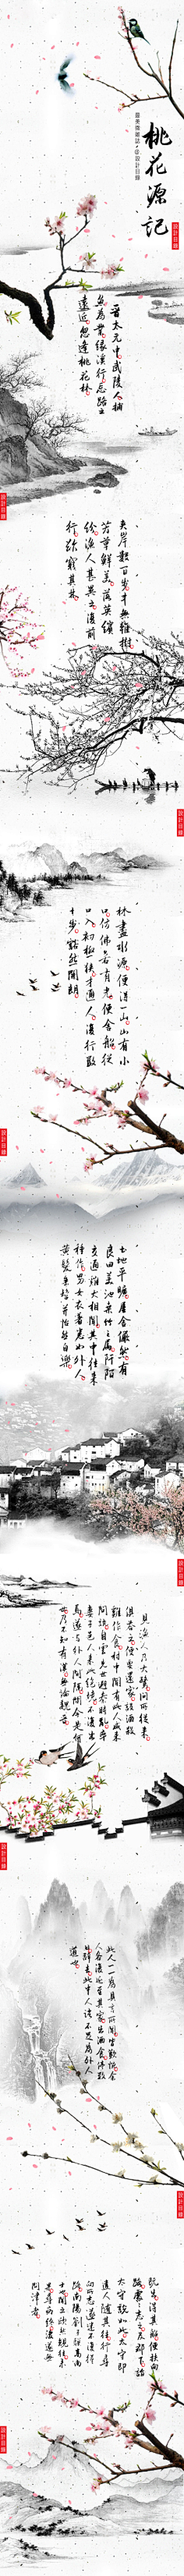 桃花源記
最美微雜誌·@設計目錄
設計目錄
晉太元中武陵人捕
魚為業緣溪行忘路之
遠近忽逢桃花林
設計目錄
夾岸數百步中無雜樹
芳草鮮美落英繽
紛漁人甚異之復前
行欲窮其林
設計目錄
林盡水源便得一山山有小
口仿佛若有光便舍船從
口入初極狹才通人復行數
十步豁然開朗
設計目錄
土地平曠屋舍儼然有
良田美池桑竹之屬阡陌
交通雞犬相聞其中往來
種作男女衣著悉如外人
黃髮垂髫並怡然自樂
設計目錄
見漁人乃大驚問所從來
具答之便要還家設酒殺
雞作食村中聞有此人咸來
問訊自云先世避秦時亂率
妻子邑人來此絕境不復出
焉遂與外人間隔問今是何
世乃不知有漢無論魏晉
設計目錄
此人一一為具言所聞皆歎惋余
人各復延至其家皆出酒食停數
日辭去此中人語云不足為外人
道也
設計目錄
既出得其船便扶向
路處處志之及郡下詣
太守說如此太守即
遣人隨其往尋
向所志遂迷不復得
路南陽劉子驥高尚
士也聞之欣然規往未
果尋病終後遂無
問津者
設計目錄